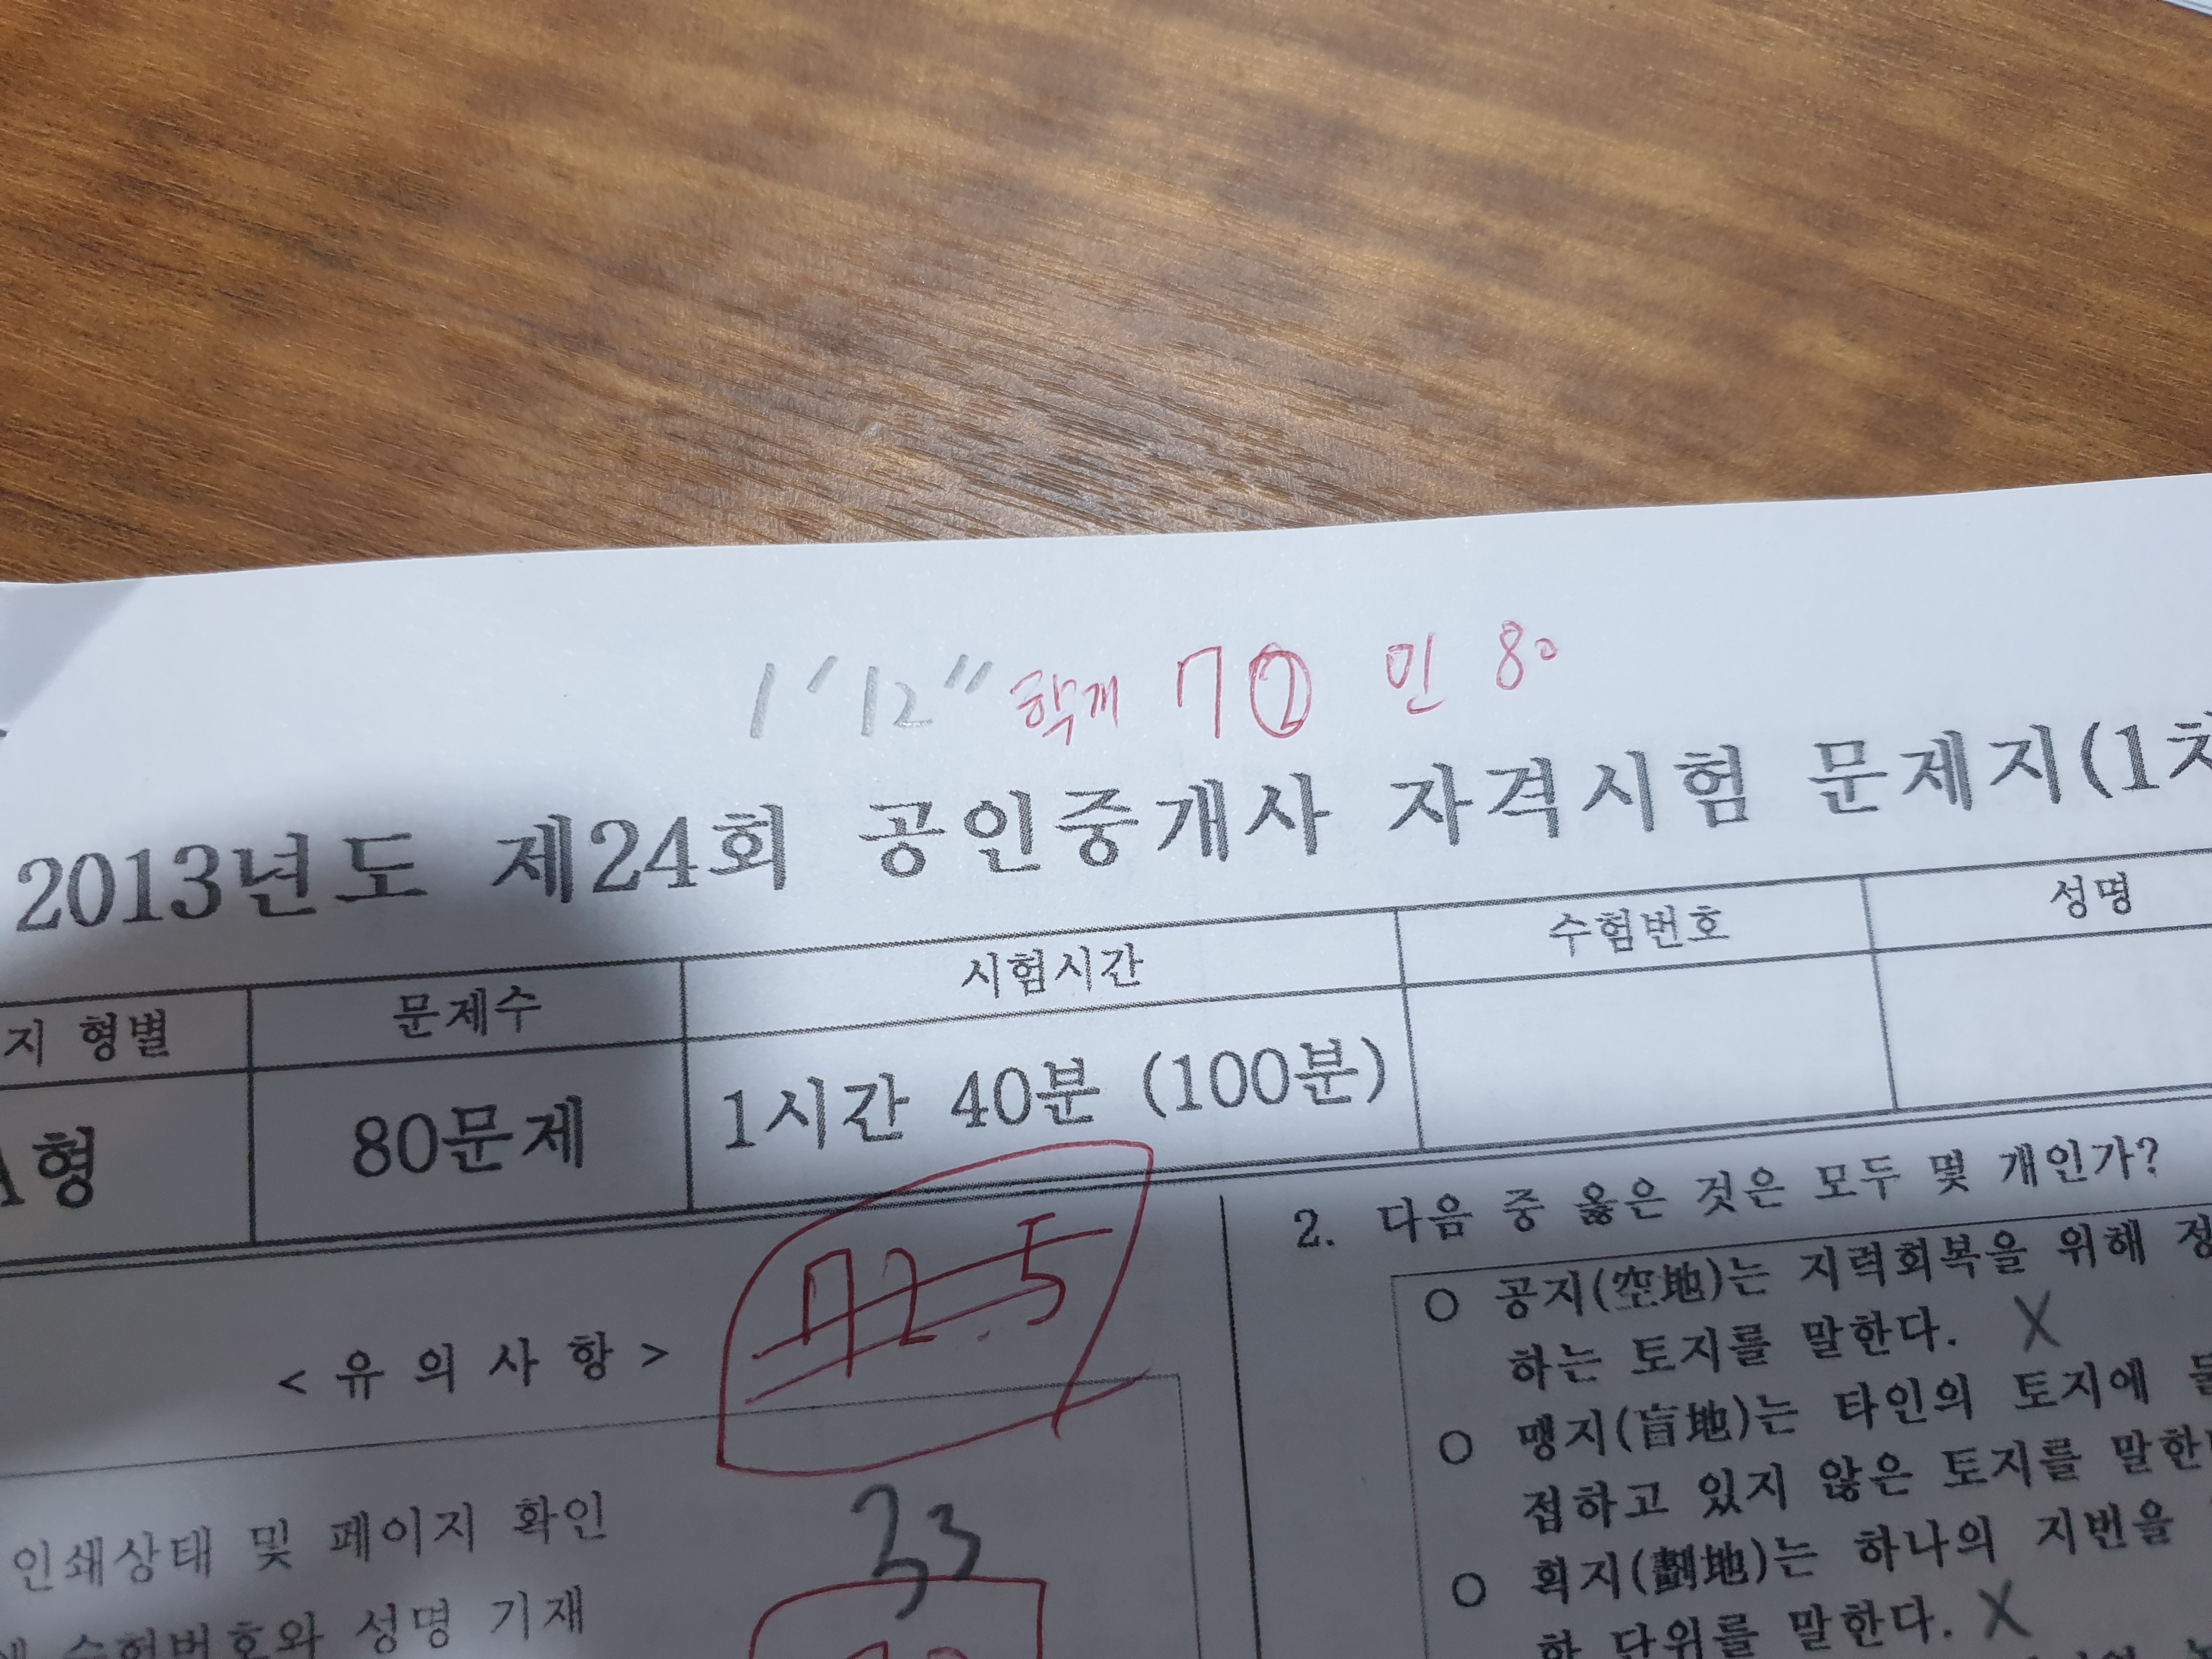 1′12″ 학개 72 민 80
2013년도 제24회 공인중개사 자격시험 문제지(1차
지 형별 문제수 시험시간 수험번호 성명
A형 80문제 1시간 40분 (100분)
72.5
< 유 의 사 항 >
33
인쇄상태 및 페이지 확인
수험번호와 성명 기재
2. 다음 중 옳은 것은 모두 몇 개인가?
○ 공지(空地)는 지력회복을 위해 정
하는 토지를 말한다. X
○ 맹지(盲地)는 타인의 토지에 둘
접하고 있지 않은 토지를 말한
○ 획지(劃地)는 하나의 지번을
한 단위를 말한다. X